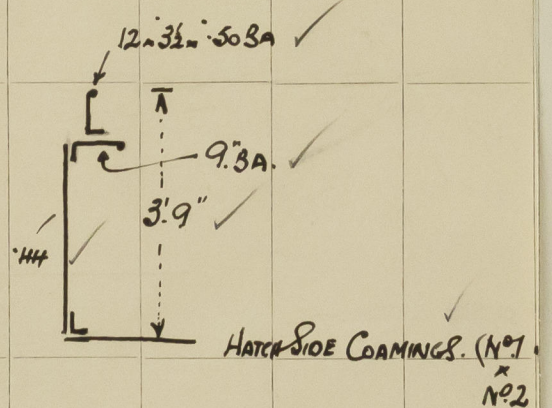 12" x 3½" x .50 BA
9" BA.
3'.9"
.44
HATCH SIDE COAMINGS. (Nº1
x
Nº2